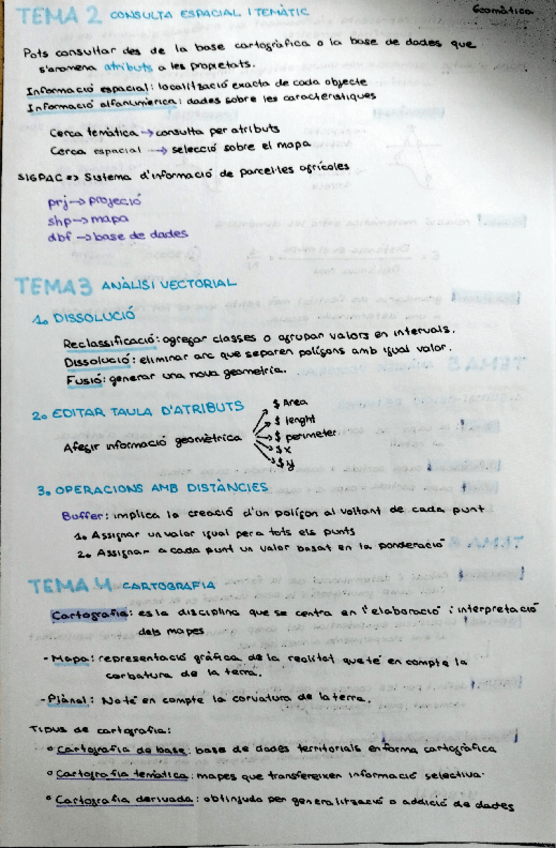 Geomàtica
TEMA 2 CONSULTA ESPACIAL I TEMÀTIC
Pots consultar des de la base cartogràfica o la base de dades que
s'anomena atributs a les propietats.
Informació espacial: localització exacta de cada objecte
Informació alfanumèrica: dades sobre les característiques
Cerca temàtica → consulta per atributs
Cerca espacial → selecció sobre el mapa
SIGPAC => Sistema d'informació de parcel·les agrícoles
prj → projecció
shp → mapa
dbf → base de dades
TEMA 3 ANÀLISI VECTORIAL
1. DISSOLUCIÓ
Reclassificació: agregar classes o agrupar valors en intervals.
Dissolució: eliminar arc que separen polígons amb igual valor.
Fusió: generar una nova geometria.
2. EDITAR TAULA D'ATRIBUTS
Afegir informació geomètrica
$ Area
$ lenght
$ perimeter
$ x
$ y
3. OPERACIONS AMB DISTÀNCIES
Buffer: implica la creació d'un polígon al voltant de cada punt
1. Assignar un valor igual per a tots els punts
2. Assignar a cada punt un valor basat en la ponderació
TEMA 4 CARTOGRAFIA
Cartografia: es la disciplina que se centra en l'elaboració i interpretació
dels mapes
- Mapa: representació gràfica de la realitat que té en compte la
corbatura de la terra.
- Plànol: No té en compte la corvatura de la terra.
Tipus de cartografia:
° Cartografia de base: base de dades territorials en forma cartogràfica
° Cartografia temàtica: mapes que transfereixen informació selectiva.
° Cartografia derivada: obtinguda per generalització o addició de dades